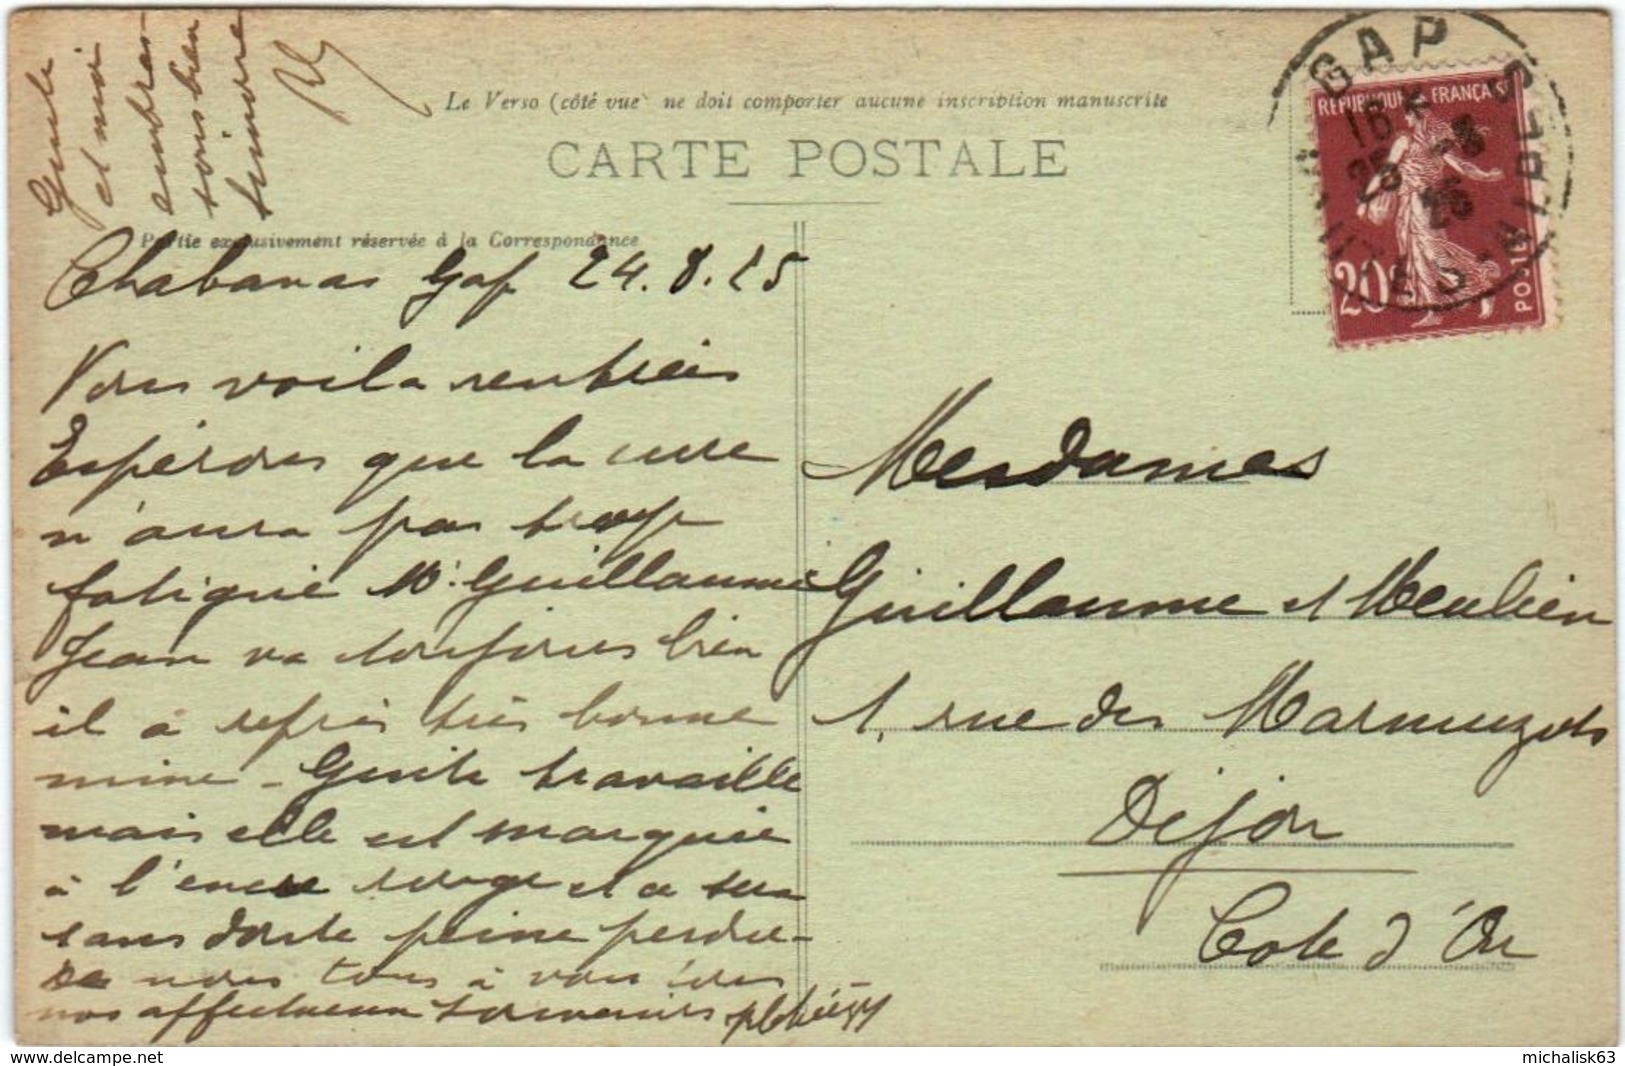 Guite
et moi
embras-
sons bien
Simone
Le Verso (côté vue) ne doit comporter aucune inscription manuscrite
CARTE POSTALE
Partie exclusivement réservée à la Correspondance
Chabanas Gap 24.8.25
Vous voilà rentrées
Espérons que la cure
n'aura pas trop
fatigué Me Guillaume
Jean va toujours bien
il a repris très bonne
mine - Guite travaille
mais elle est marquée
à l'encre rouge et ce sera
sans doute peine perdue-
De nous tous à vous tous
nos affectueux souvenirs
GAP
HAUTES-ALPES
16
25 -8
25
REPUBLIQUE FRANÇAISE
20c
POSTES
Mesdames
Guillaume et Meulien
1, rue des Marmuzots
Dijon
Cote d'Or
www.delcampe.net
michalisk63